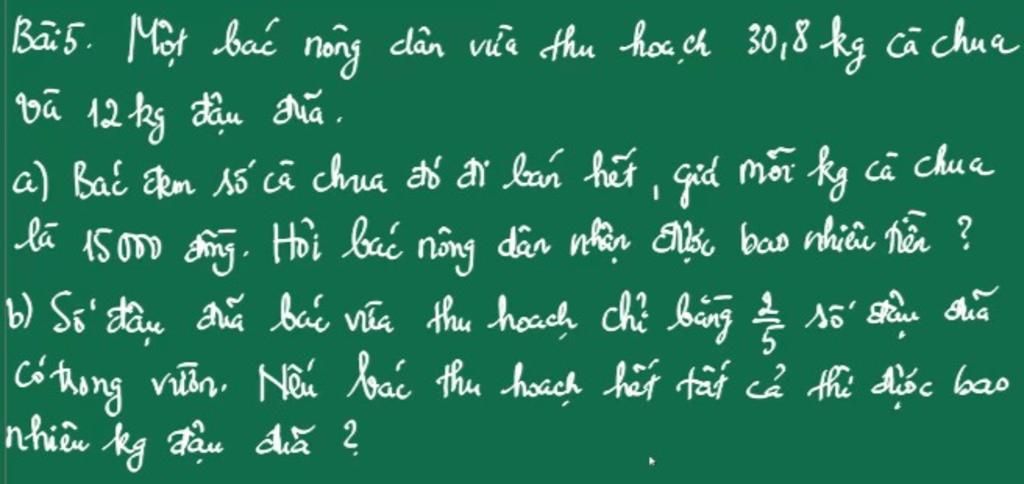 Bài 5. Một bác nông dân vừa thu hoạch 30,8 kg cà chua
và 12 kg đậu đũa.
a) Bác đem số cà chua đó đi bán hết, giá mỗi kg cà chua
là 15000 đồng. Hỏi bác nông dân nhận được bao nhiêu tiền ?
b) Số đậu đũa bác vừa thu hoạch chỉ bằng 2/5 số đậu đũa
có trong vườn. Nếu bác thu hoạch hết tất cả thì được bao
nhiêu kg đậu đũa ?